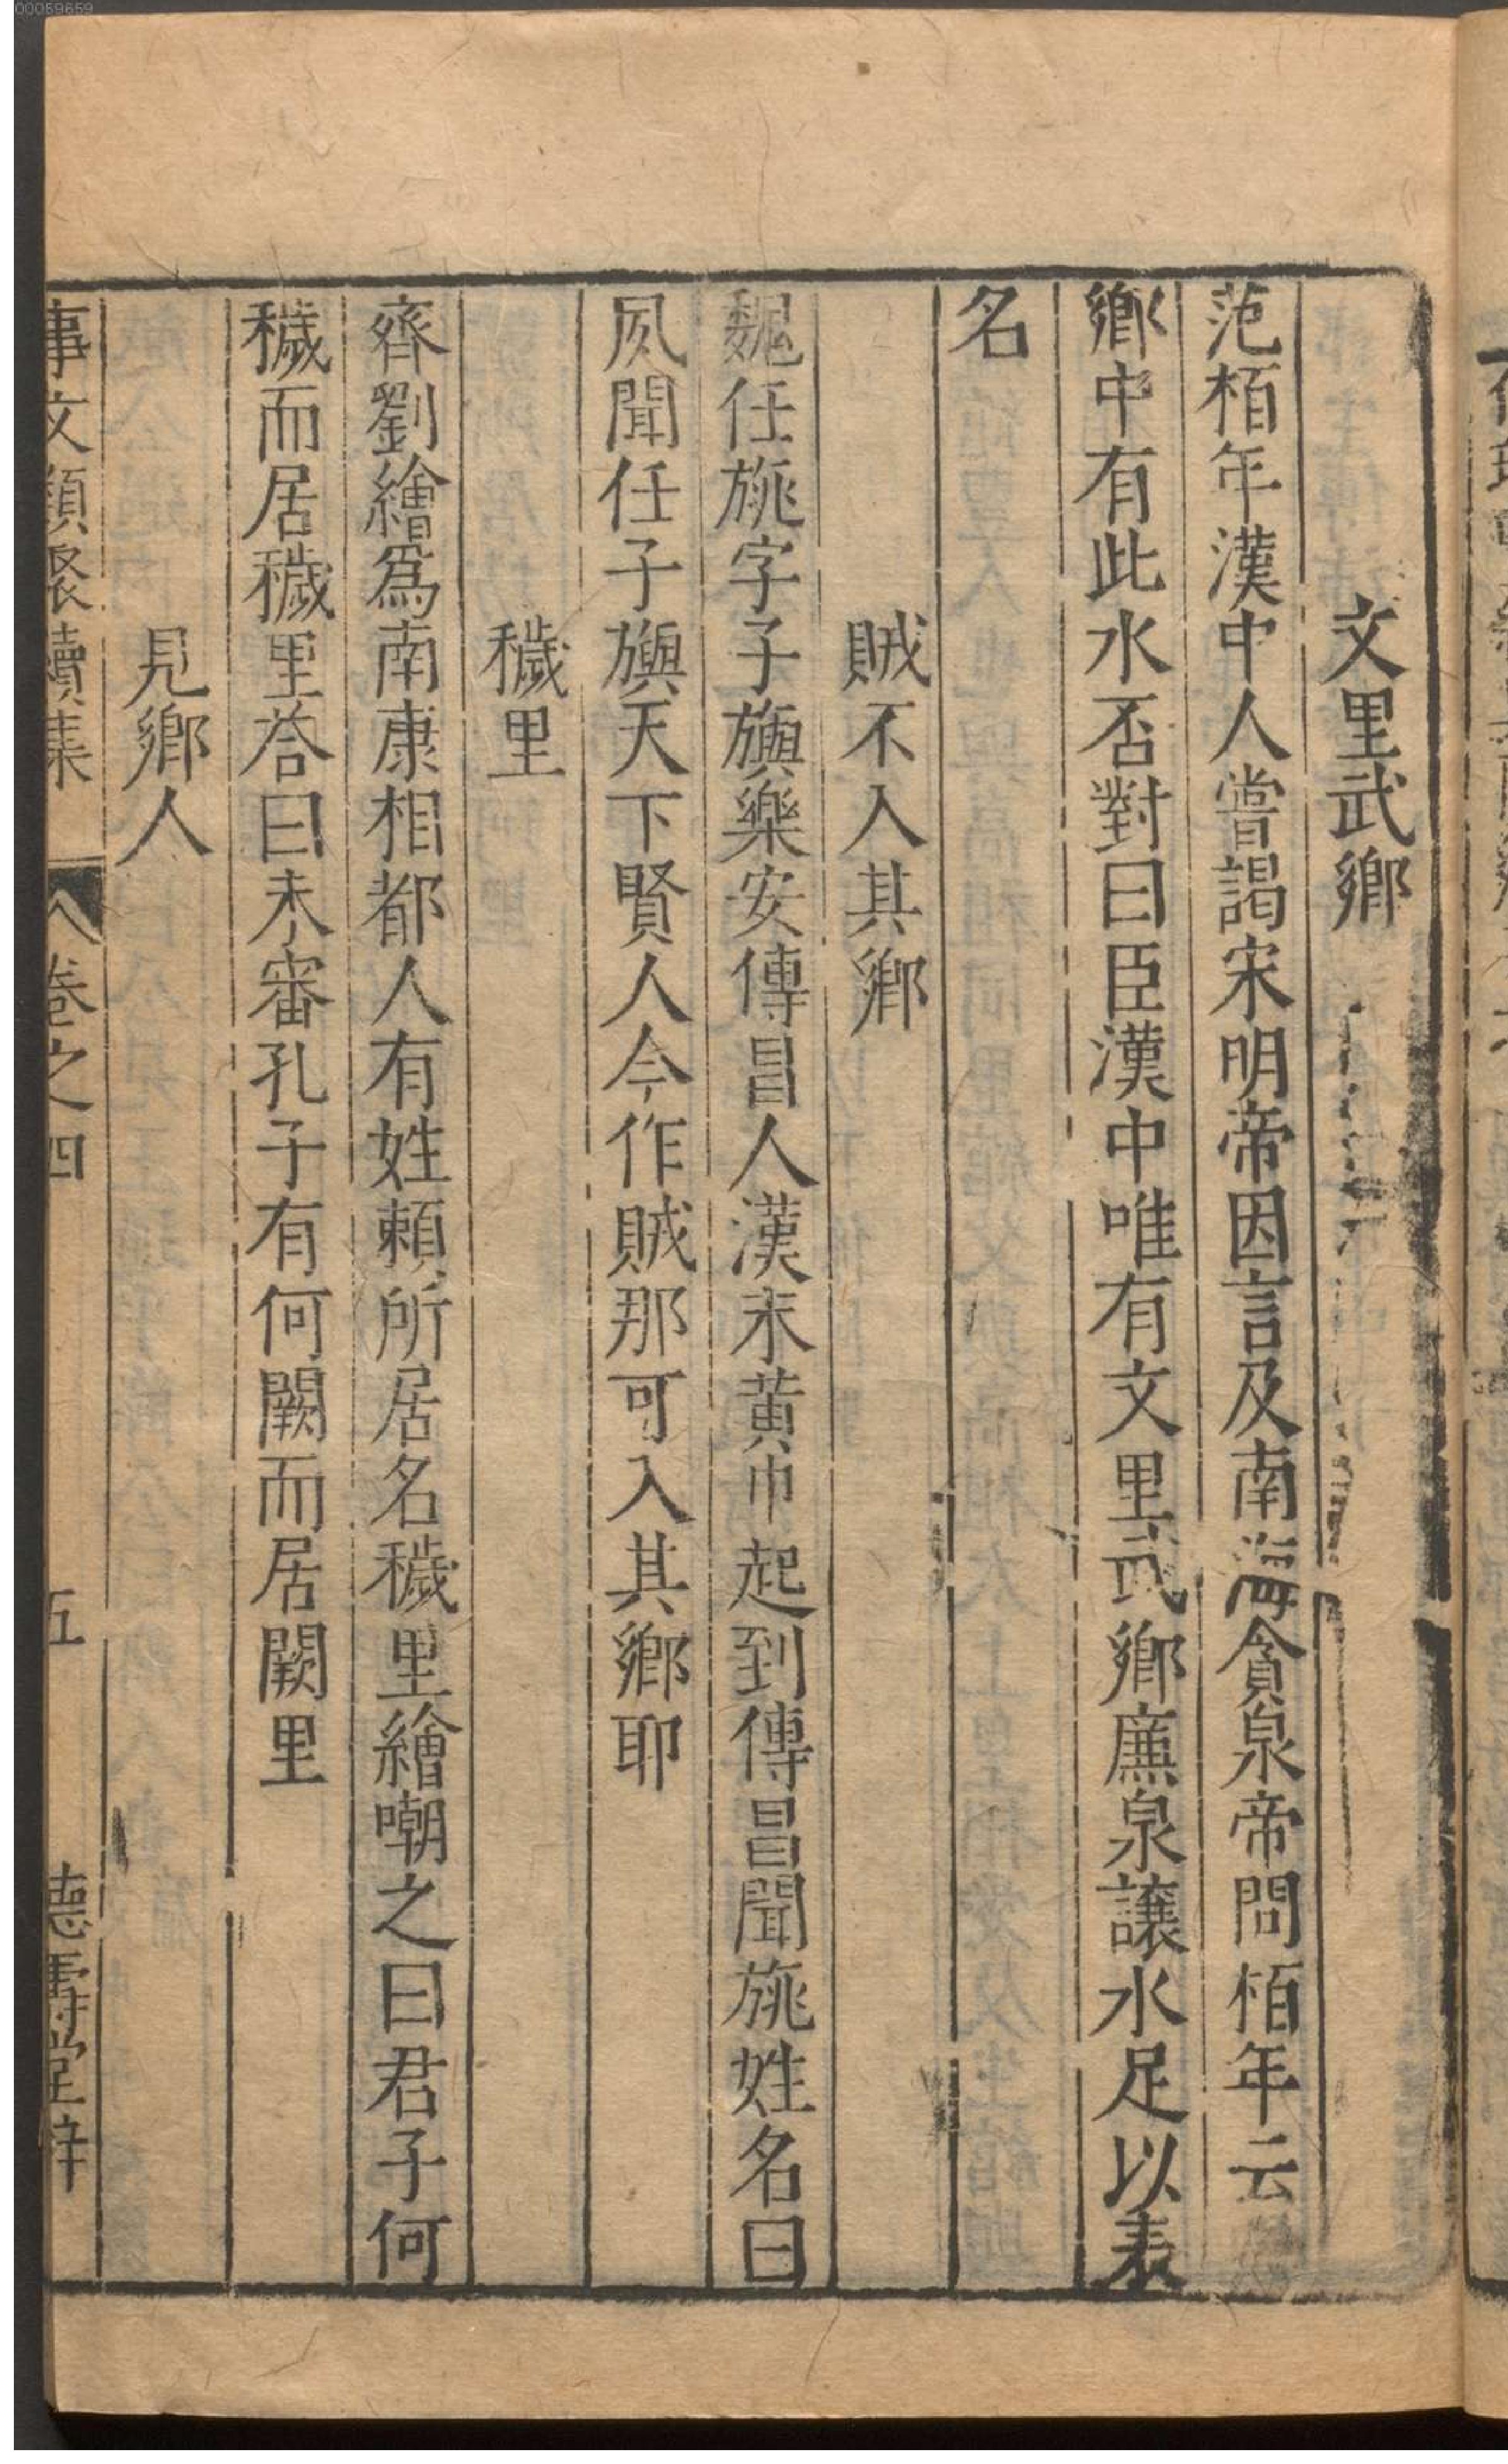 文里武鄉
范栢年漢中人嘗謁宋明帝因言及南海貪泉帝問栢年云
鄉中有此水否對曰臣漢中唯有文里武鄉廉泉讓水足以表
名
賊不入其鄉
魏任旐字子旟樂安傳昌人漢末黃巾起到傳昌聞旐姓名曰
夙聞任子旟天下賢人今作賊那可入其鄉耶
穢里
齊劉繪爲南康相都人有姓頼所居名穢里繪嘲之曰君子何
穢而居穢里荅曰未審孔子有何闕而居闕里
見鄉人
事文類聚續集 卷之四 五 德壽堂梓
00089659